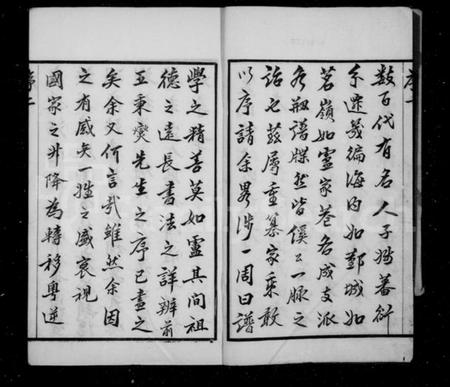 序一
數百代有名人子姓蕃衍
系遝幾徧海內如鄞城如
茗嶺如靈家巷各成支派
各翔譜牒然皆僕公一脈之
話也茲屬重纂家乘敢
以序請余畧涉一周曰譜
學之精善莫如靈其間祖
德之遠長書法之詳辨前
王秉燮先生之序已盡之
矣余又何言哉雖然余因
之有感矣一姓之盛衰視
國家之升降為轉移粵逆
序二